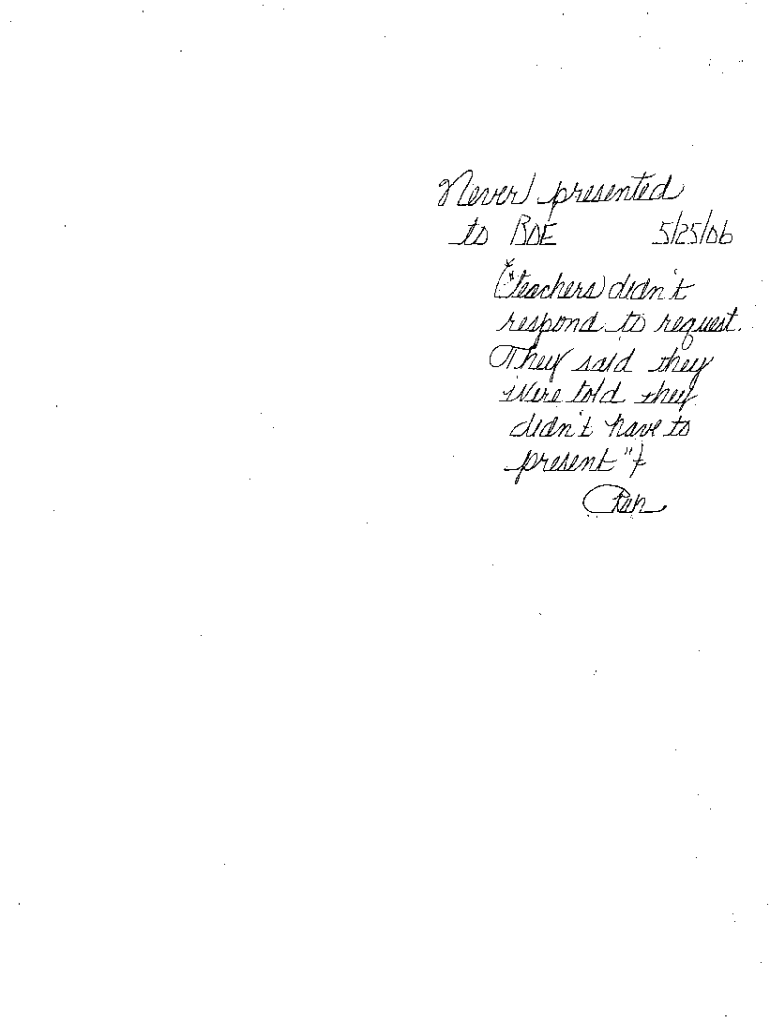 Never presented
to BOE 5/25/06
(*teachers) didn't
respond to request.
They said they
were told they
didn't have to
present"